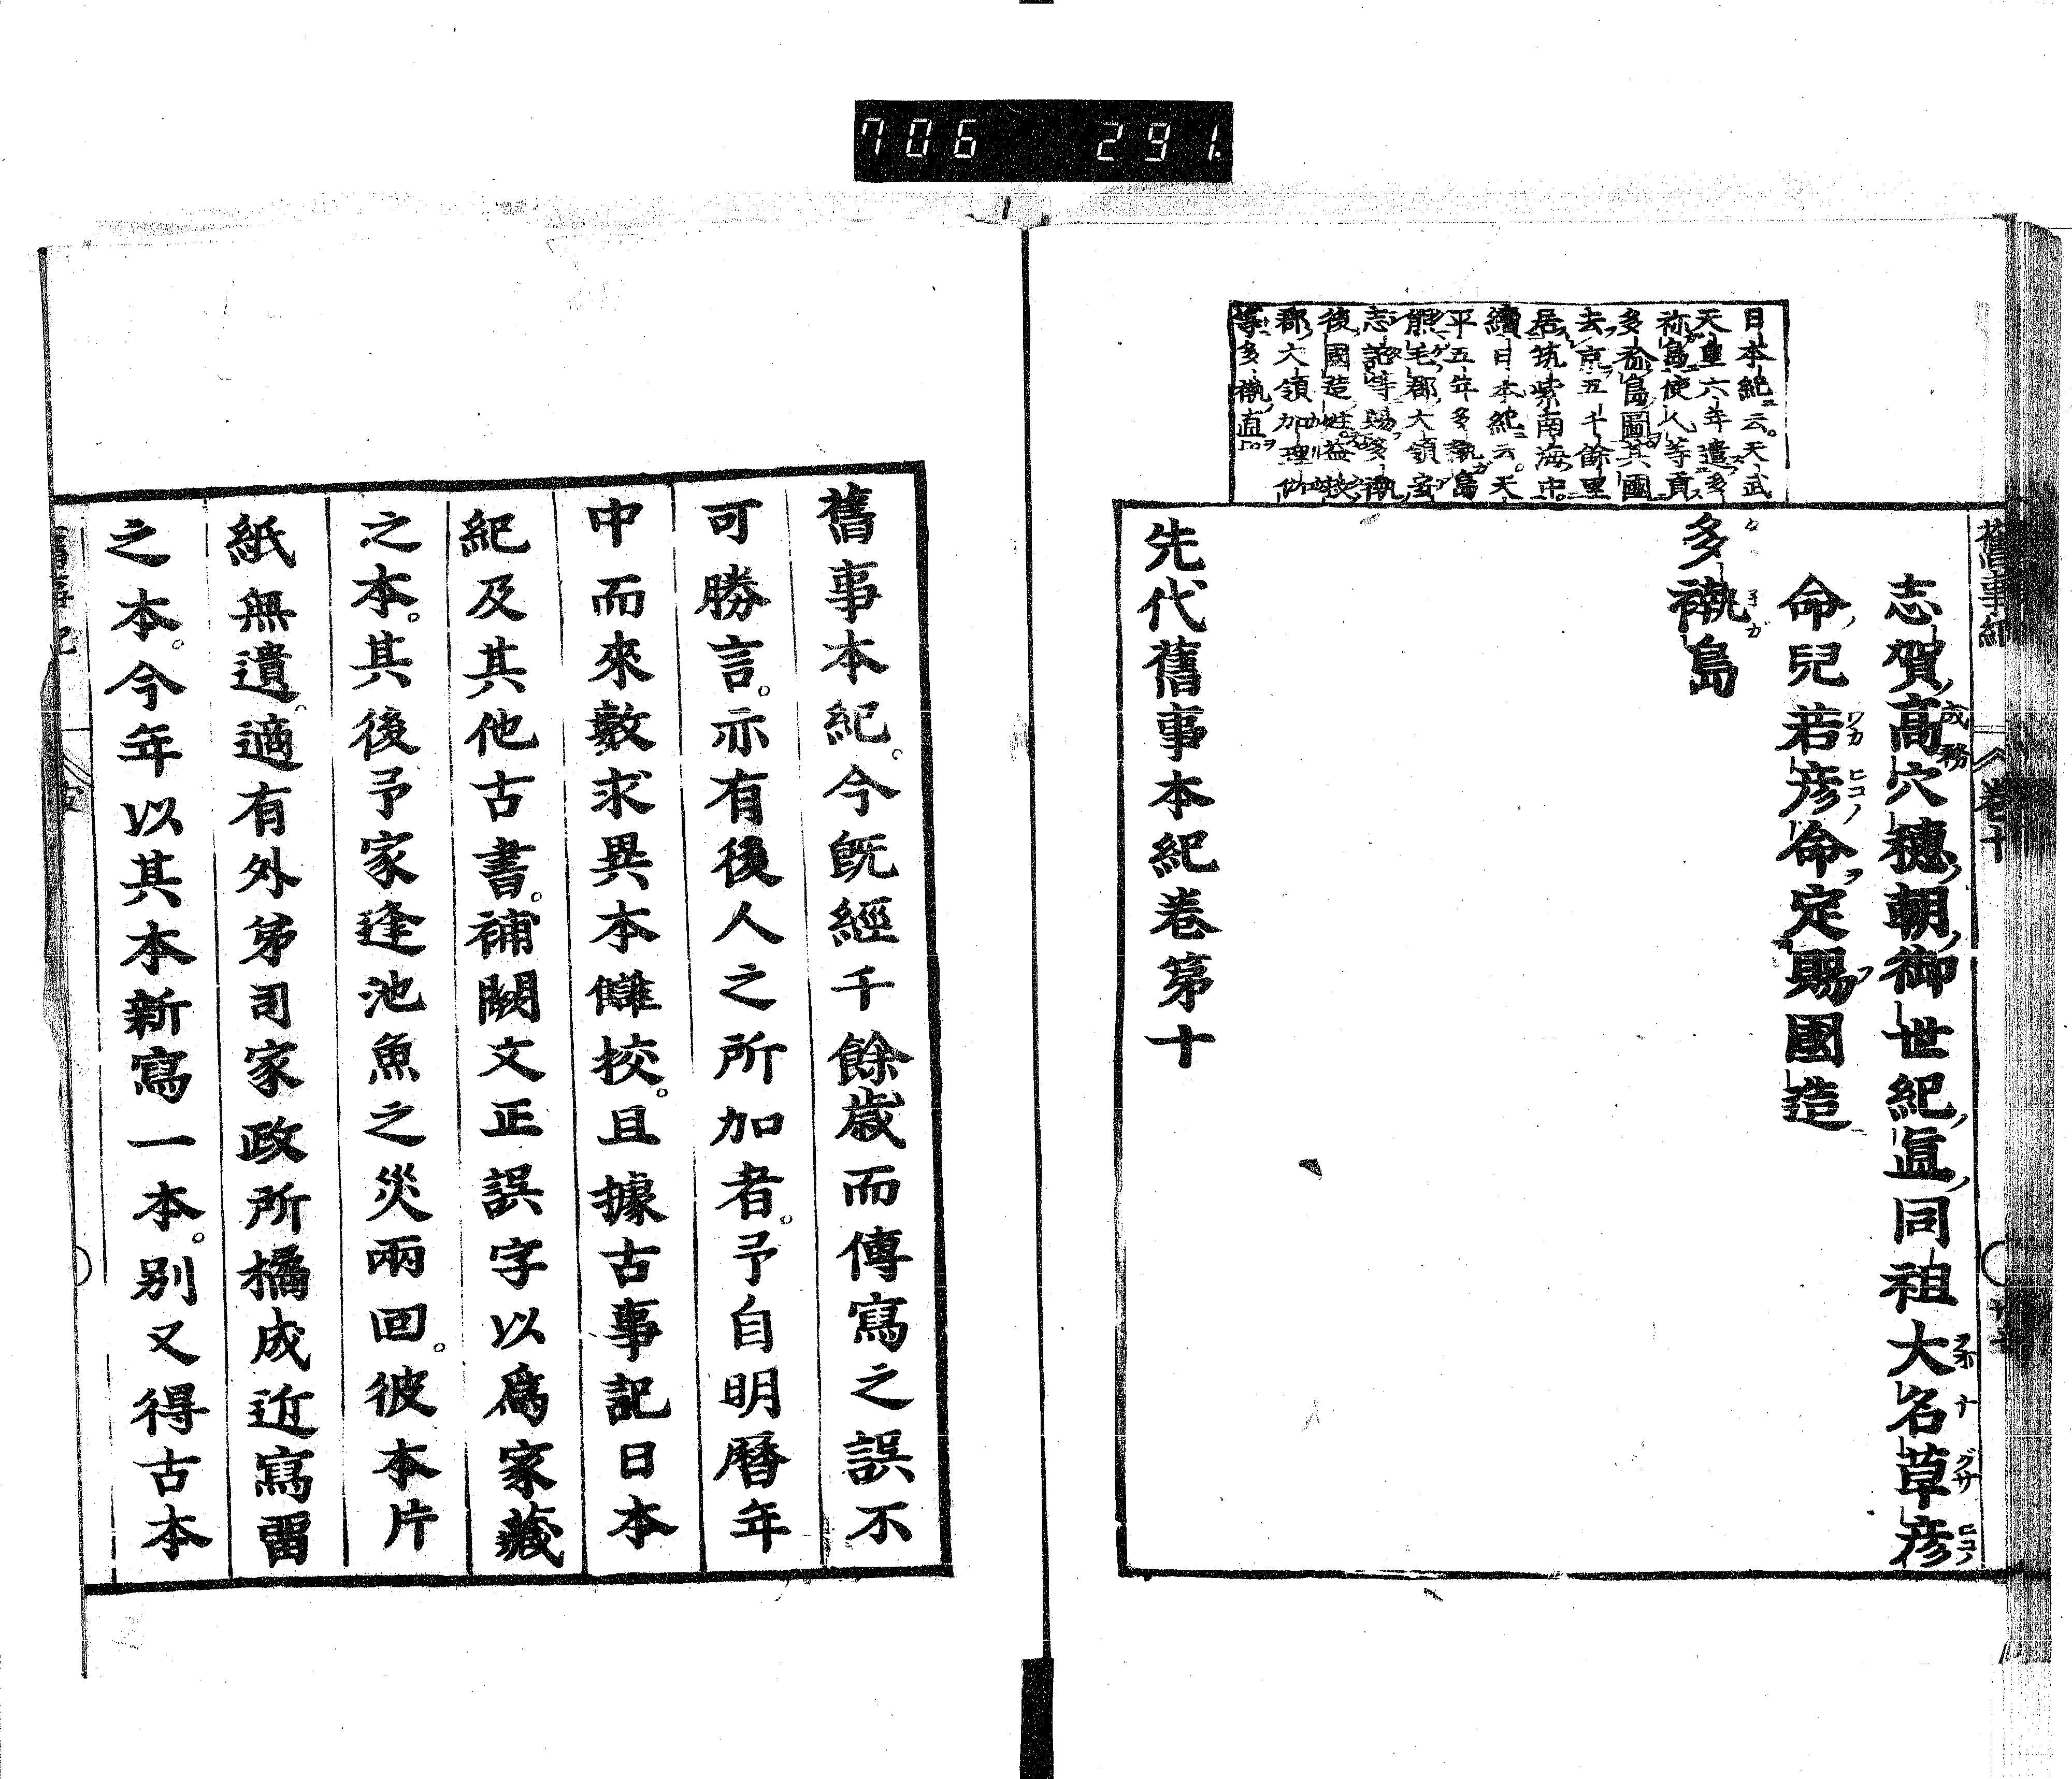 706 291.
日本紀云。天武
天皇六年遣多
祢島使人等貢
多祢島圖其國
去京五千餘里
居筑紫南海中。
續日本紀云。天
平五年多褹島
熊毛郡大領安
志託等賜多褹
後國造姓益救
郡大領加理伽
等多褹直
舊事紀 卷十
志賀高穴穗朝御世紀直同祖大名草彦
成務
命兒若彦命定賜國造
多褹島
先代舊事本紀卷第十
舊事本紀。今既經千餘歲而傳寫之誤不
可勝言。亦有後人之所加者。予自明曆年
中而來數求異本讎挍。且據古事記日本
紀及其他古書。補闕文正誤字以爲家藏
之本。其後予家逢池魚之災兩回。彼本片
紙無遺。適有外弟司家政所橘成近寫留
之本。今年以其本新寫一本。別又得古本